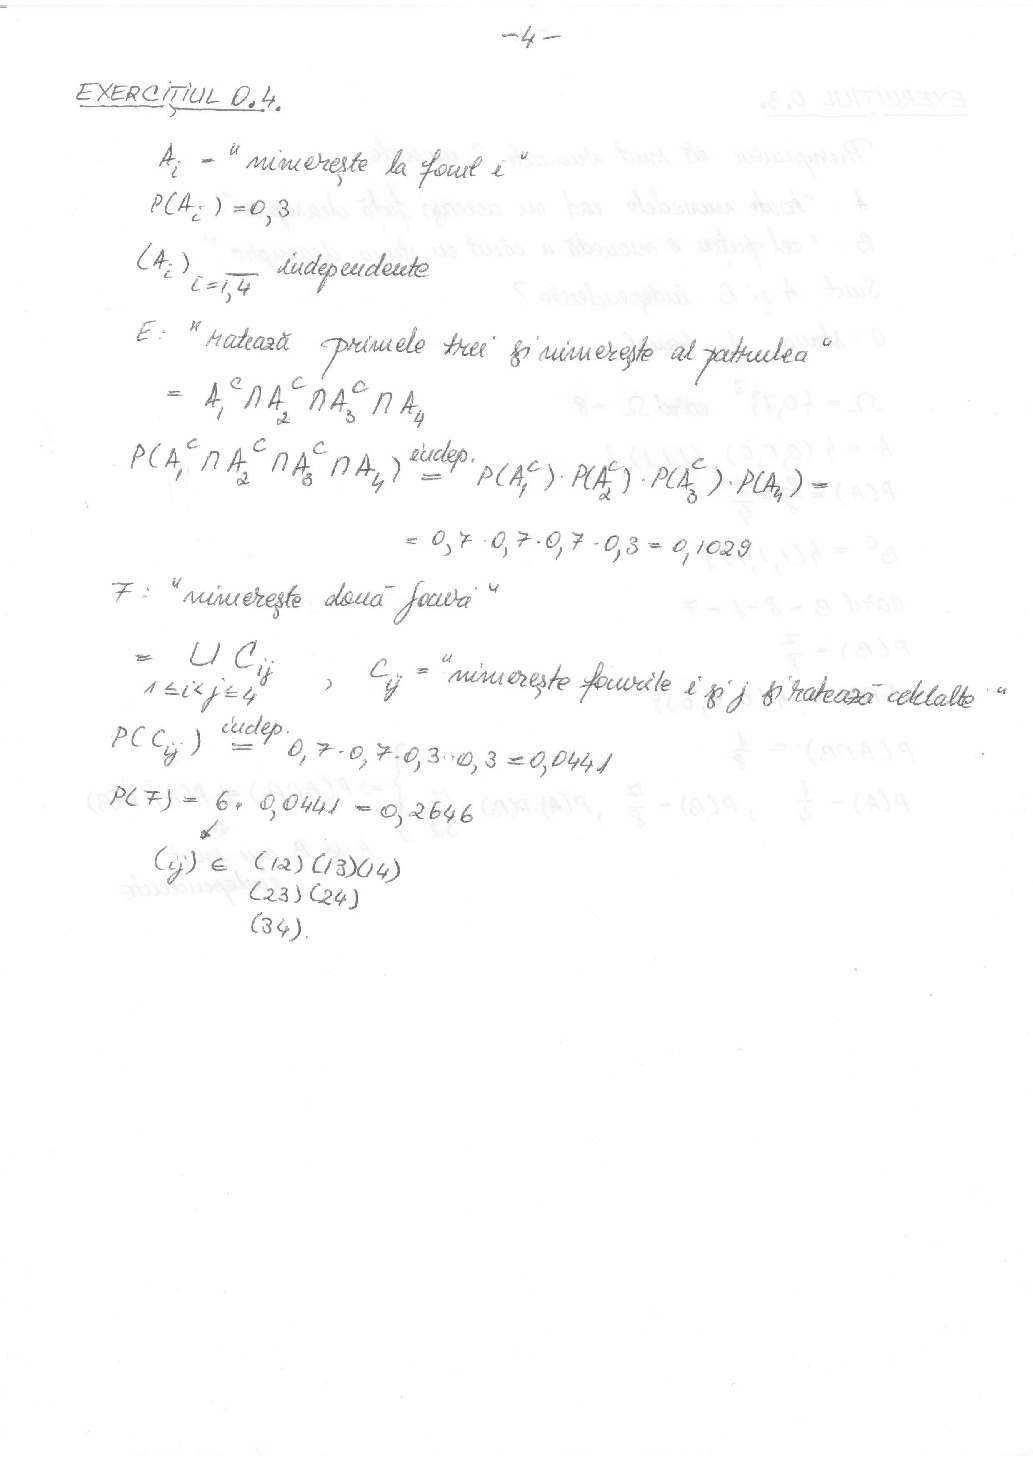 -4-
EXERCIȚIUL 0.4.
A_i - "nimerește la focul i"
P(A_i) = 0,3
(A_i)_{i=\overline{1,4}} independente
E: "ratează primele trei și nimerește al patrulea"
= A_1^C ∩ A_2^C ∩ A_3^C ∩ A_4
P(A_1^C ∩ A_2^C ∩ A_3^C ∩ A_4) \overset{indep.}{=} P(A_1^C) · P(A_2^C) · P(A_3^C) · P(A_4) =
= 0,7 · 0,7 · 0,7 · 0,3 = 0,1029
F: "nimerește două focuri"
= ⋃_{1≤i<j≤4} C_{ij} , C_{ij} = "nimerește focurile i și j și ratează celelalte"
P(C_{ij}) \overset{indep.}{=} 0,7 · 0,7 · 0,3 · 0,3 = 0,0441
P(F) = 6 · 0,0441 = 0,2646
↙
(ij) ∈ (12) (13) (14)
(23) (24)
(34).